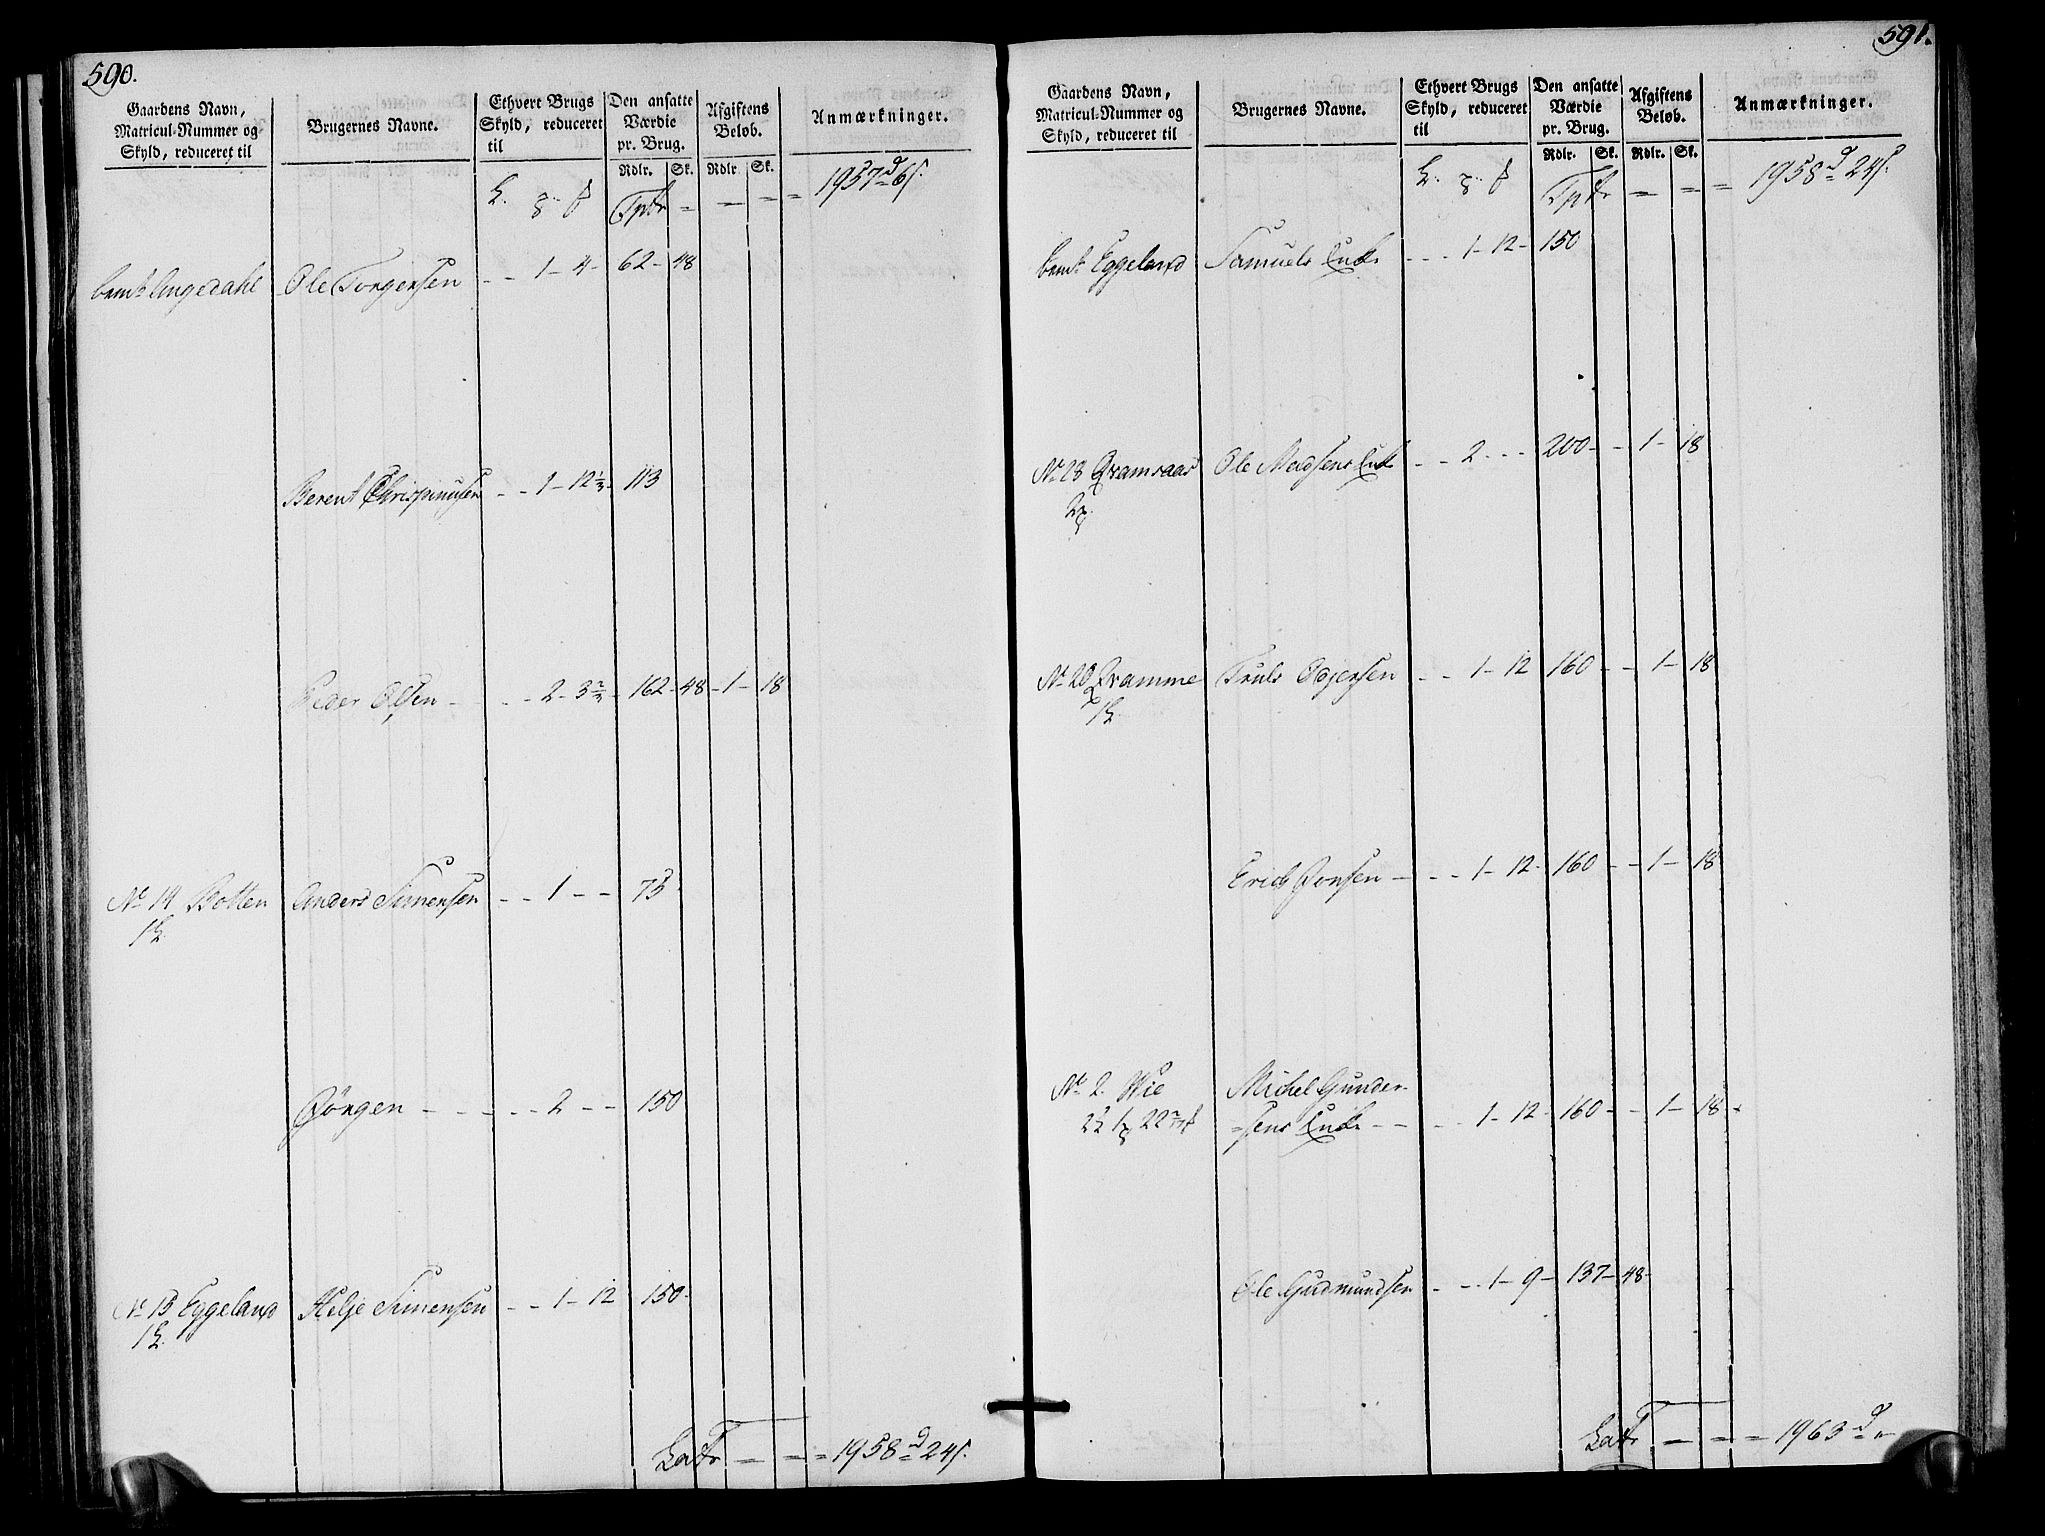 590.
Gaardens Navn, Matricul-Nummer og Skyld, reduceret til
Brugernes Navne.
Ethvert Brugs Skyld, reduceret til
Den ansatte Værdie pr. Brug.
Afgiftens Beløb.
Anmærkninger.
Rdlr. Sk. Rdlr. Sk.
Tptr = = = = 1957 d 6 s.
Ole Torgersen - - 1 - 4 - 62 - 48
Berent Chrispinusen - - 1 - 12 1/2 - 113
Peder Olsen - - - 2 - 3 1/2 - 162 - 48 - 1 - 18
No 14 Botten Anders Simensen - - 1 - - 75
Jörgen - - - - - 2 - - 150
No 15 Eggeland Helje Simensen - - 1 - 12 150 -
Latr = = = 1958 d 24 s.
591.
Gaardens Navn, Matricul-Nummer og Skyld, reduceret til
Brugernes Navne.
Ethvert Brugs Skyld, reduceret til
Den ansatte Værdie pr. Brug.
Afgiftens Beløb.
Anmærkninger.
Rdlr. Sk. Rdlr. Sk.
Tptr = = = 1958 d 24 s.
Eggeland Samuels Enke - - - 1 - 12 - 150
Ole Madsens Enke - - 2 - - - 200 - - 1 - 18
Truls - - 1 - 12 160 - - 1 - 18
Erich Jonsen - - - 1 - 12 - 160 - - 1 - 18
No 2. Wie Michel Gunder-
=sens Enke - - - 1 - 12 - 160 - - 1 - 18 -
Ole Gudmundsen - - - 1 - 9 - 137 - 48 -
Latr = = = 1963 d "